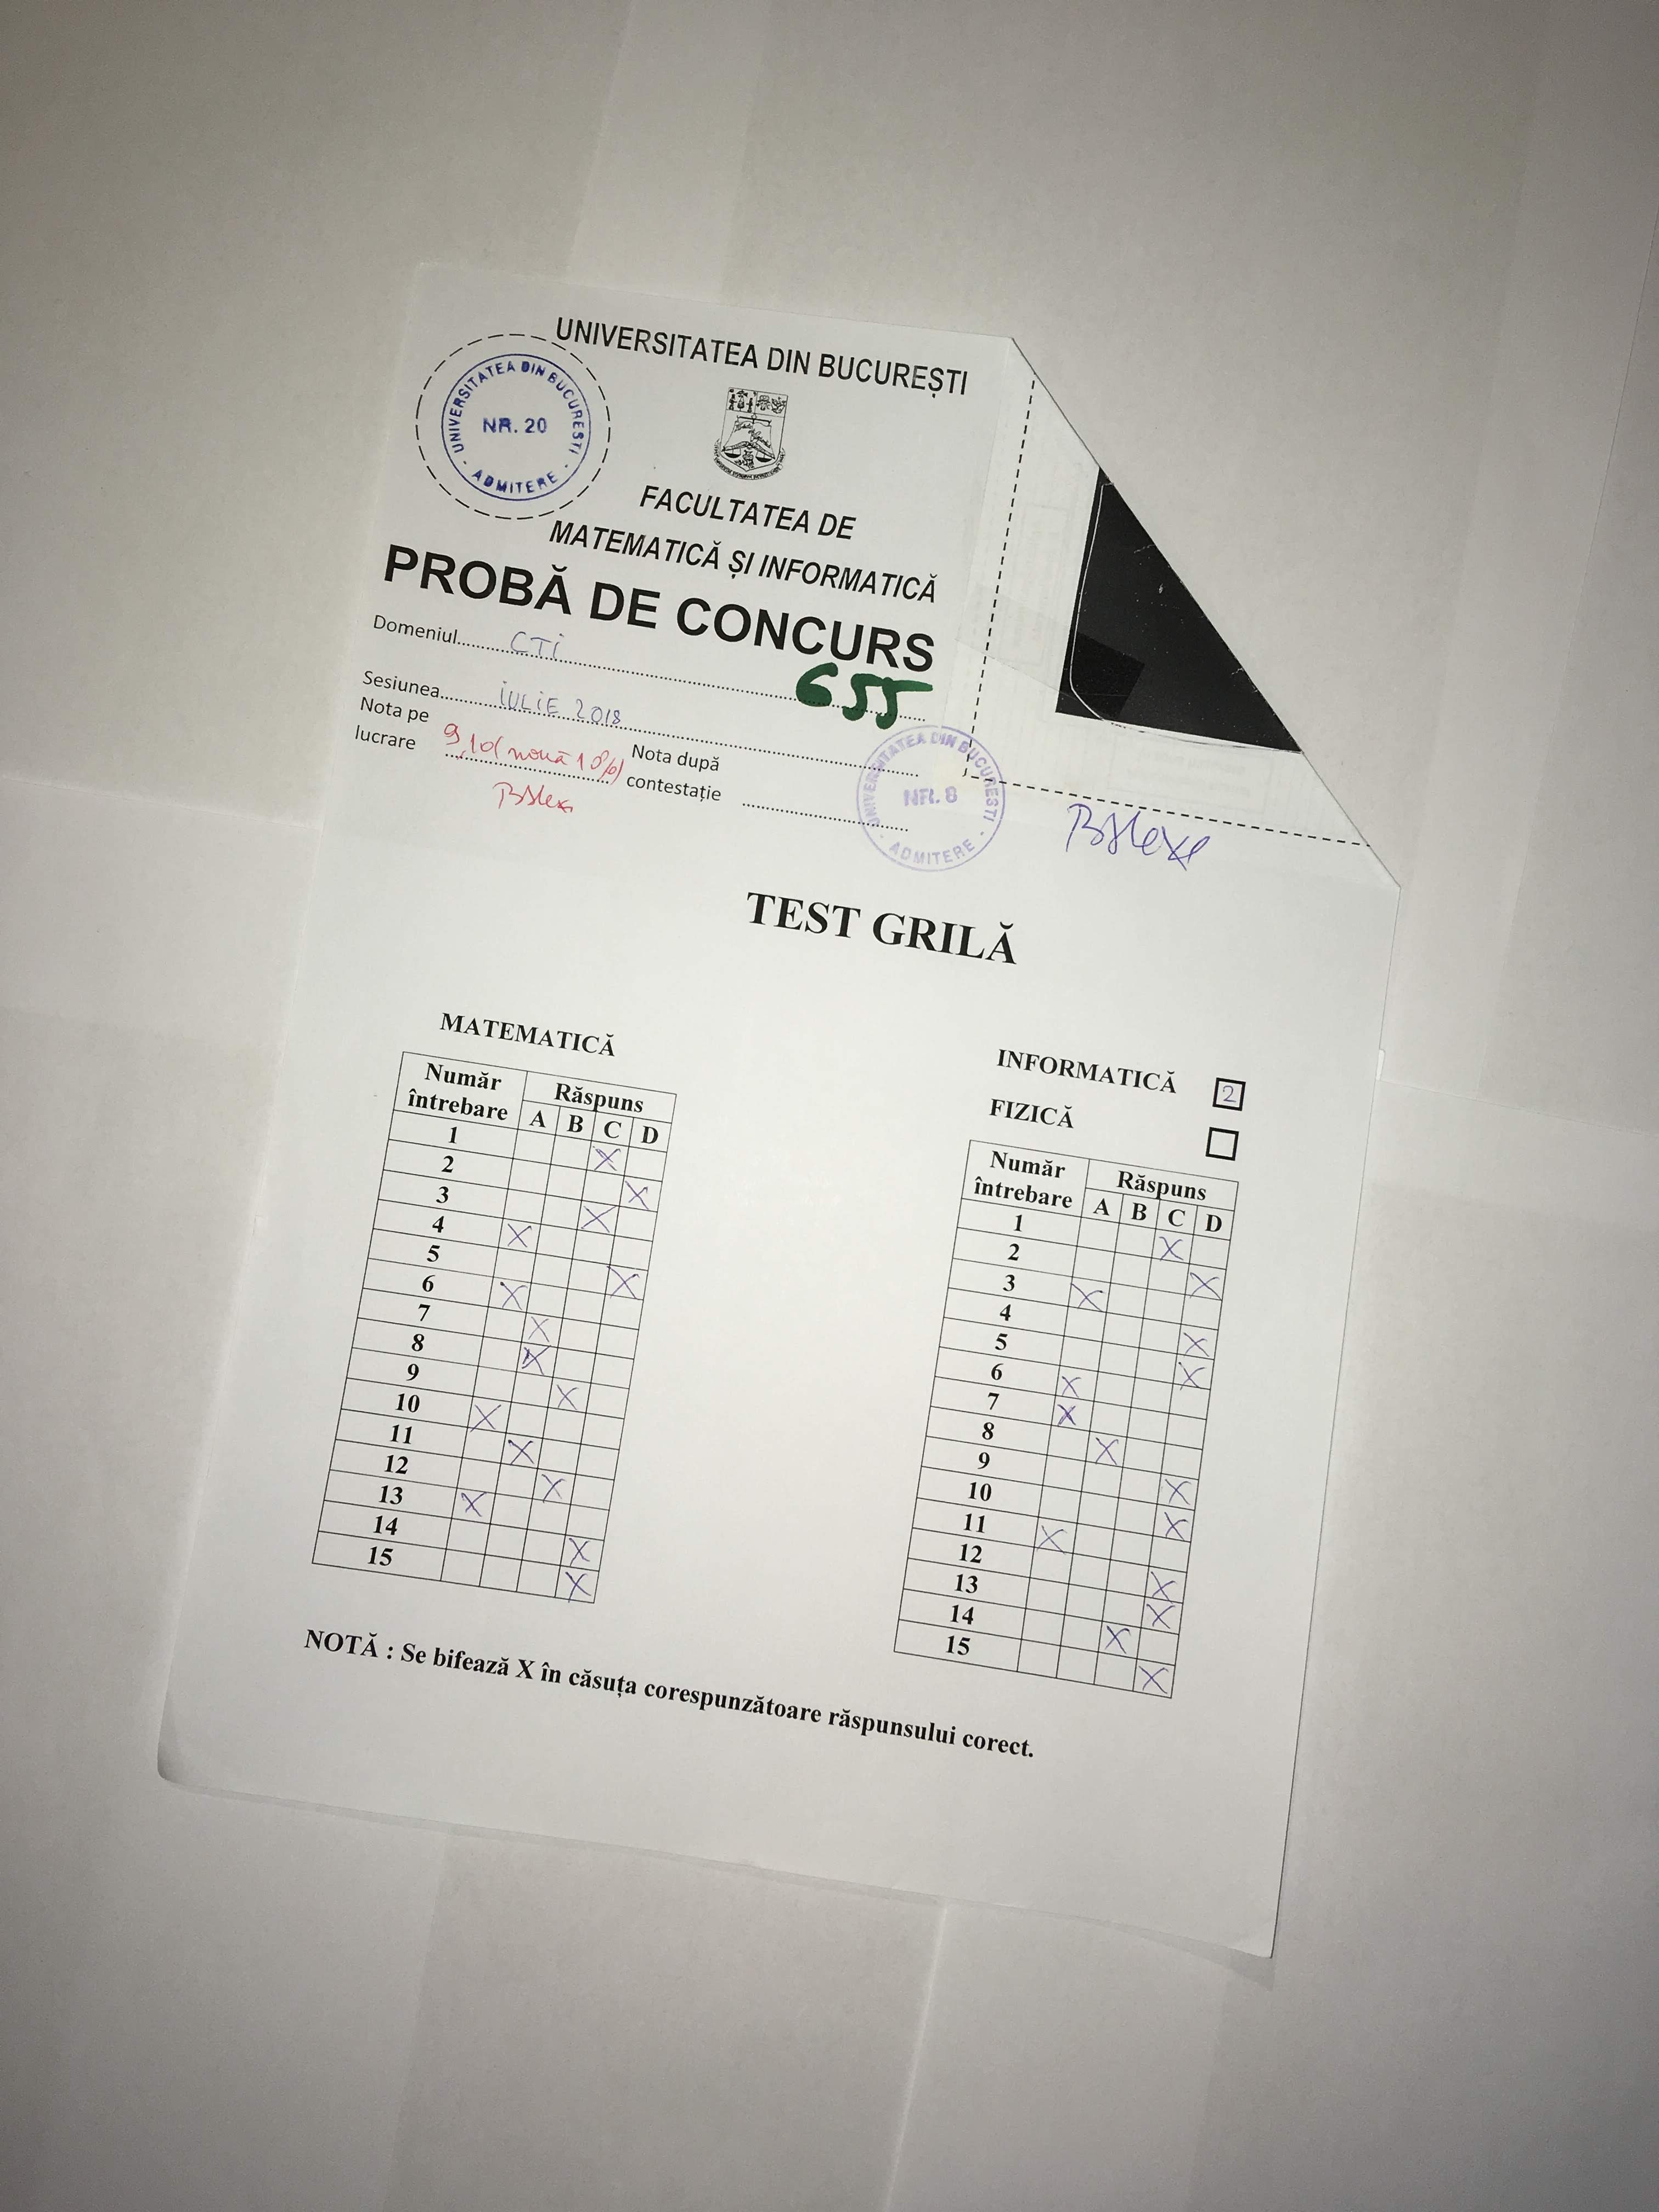 UNIVERSITATEA DIN BUCUREȘTI
UNIVERSITATEA DIN BUCURESTI
NR. 20
ADMITERE
FACULTATEA DE
MATEMATICĂ ȘI INFORMATICĂ
PROBĂ DE CONCURS
Domeniul CTI
655
Sesiunea IULIE 2018
Nota pe
lucrare 9,10 (nouă 10%)
Nota după
contestație
UNIVERSITATEA DIN BUCURESTI
NR. 8
ADMITERE
TEST GRILĂ
MATEMATICĂ
Număr întrebare Răspuns
A B C D
1 X
2 X
3 X
4 X
5 X
6 X
7 X
8 X
9 X
10 X
11 X
12 X
13 X
14 X
15 X
INFORMATICĂ 2
FIZICĂ
Număr întrebare Răspuns
A B C D
1 X
2 X
3 X
4 X
5 X
6 X
7 X
8 X
9 X
10 X
11 X
12 X
13 X
14 X
15 X
NOTĂ : Se bifează X în căsuța corespunzătoare răspunsului corect.